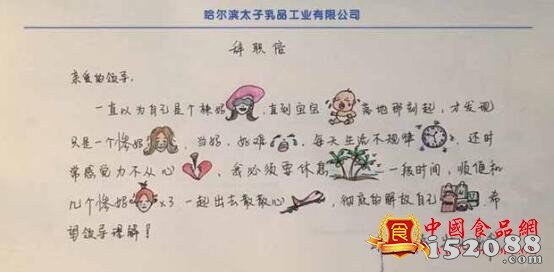 哈尔滨太子乳品工业有限公司
辞职信
亲爱的领导，
一直以为自己是个辣妈，直到宝宝落地那刻起，才发现
只是一个惨妈，当妈，好难，每天生活不规律，还时
常感觉力不从心，我必须要休息一段时间，顺便和
几个惨妈x3一起出去散散心，彻底的解放自己，希
望领导理解！
食
中國食品網
152088.com